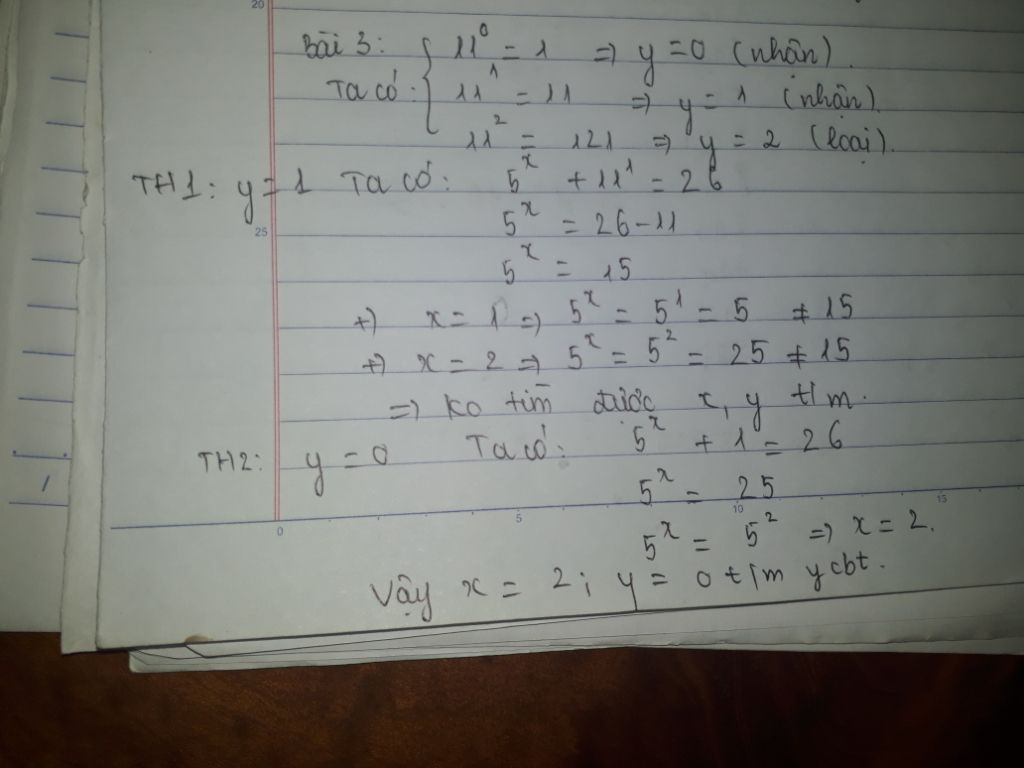 20
Bài 3: { 11⁰ = 1 => y = 0 (nhận).
Ta có: 11¹ = 11 => y = 1 (nhận).
11² = 121 => y = 2 (loại).
TH1: y = 1 Ta có: 5ˣ + 11¹ = 26
25 5ˣ = 26 - 11
5ˣ = 15
+) x = 1 => 5ˣ = 5¹ = 5 ≠ 15
+) x = 2 => 5ˣ = 5² = 25 ≠ 15
=> ko tìm được x, y t/m.
TH2: y = 0 Ta có: 5ˣ + 1 = 26
5ˣ = 25
0 5 10 15
5ˣ = 5² => x = 2.
Vậy x = 2; y = 0 t/m ycbt.